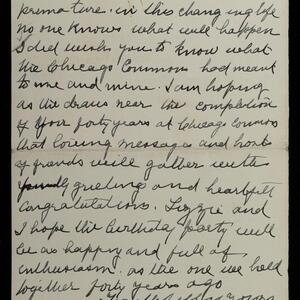 premature. in this changing life
no one knows what will happen
I did wish you to know what
the Chicago Commons had meant
to me and mine. I am hoping
as the draws near the completion
of your forty years at Chicago Commons
that loving messages and hosts
of friends will gather with
greeting and heartfelt
congratulations. Lizzie and
I hope the birthday party will
be as happy and full of
enthusiasm. as the one we held
together forty years ago